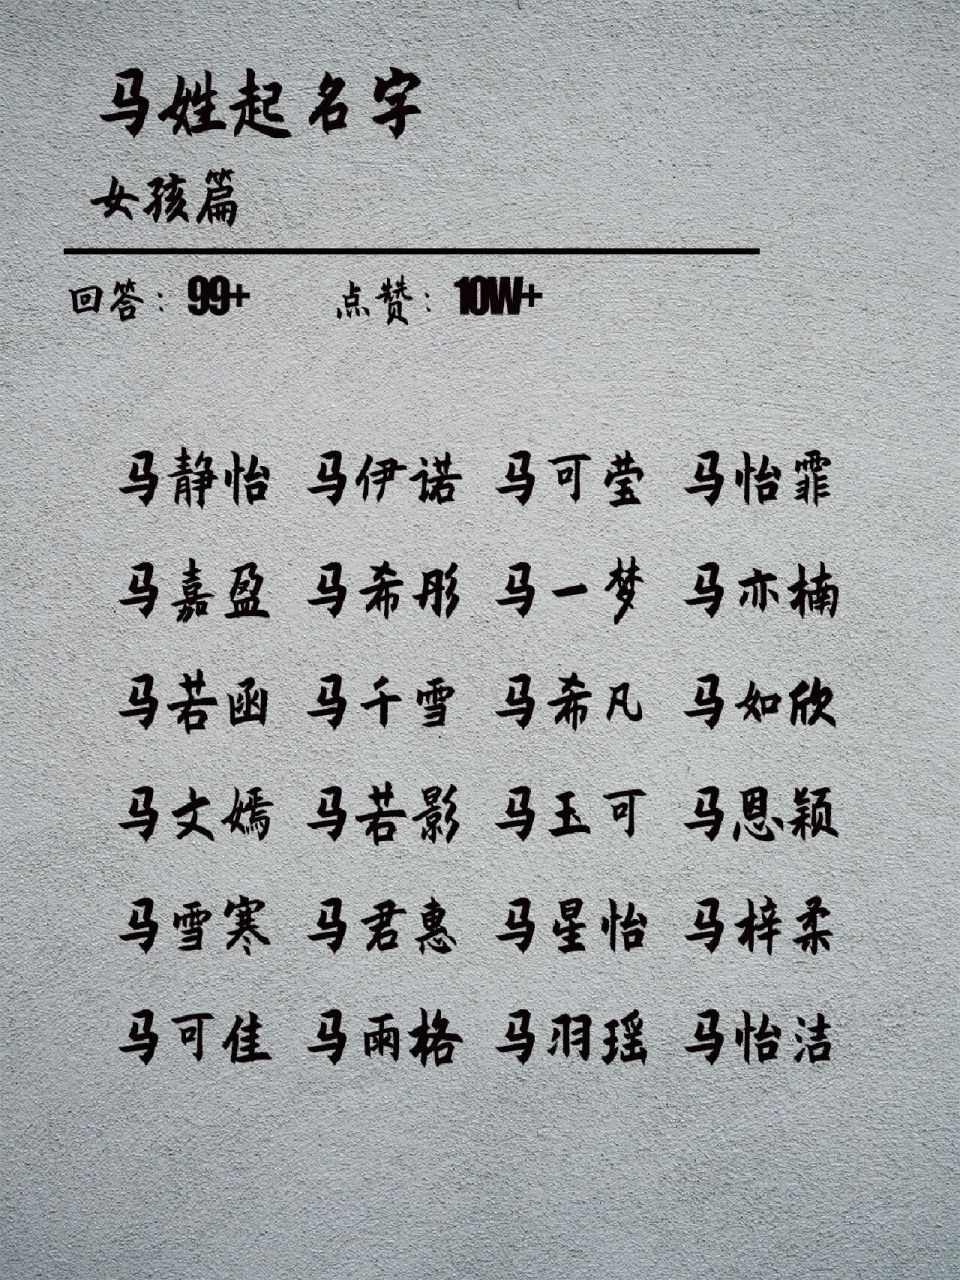 马姓起名字
女孩篇
回答：99+ 点赞：10W+
马静怡 马伊诺 马可莹 马怡霏
马嘉盈 马希彤 马一梦 马亦楠
马若函 马千雪 马希凡 马如欣
马文嫣 马若影 马玉可 马恩颖
马雪寒 马君惠 马星怡 马梓柔
马可佳 马雨格 马羽瑶 马怡洁